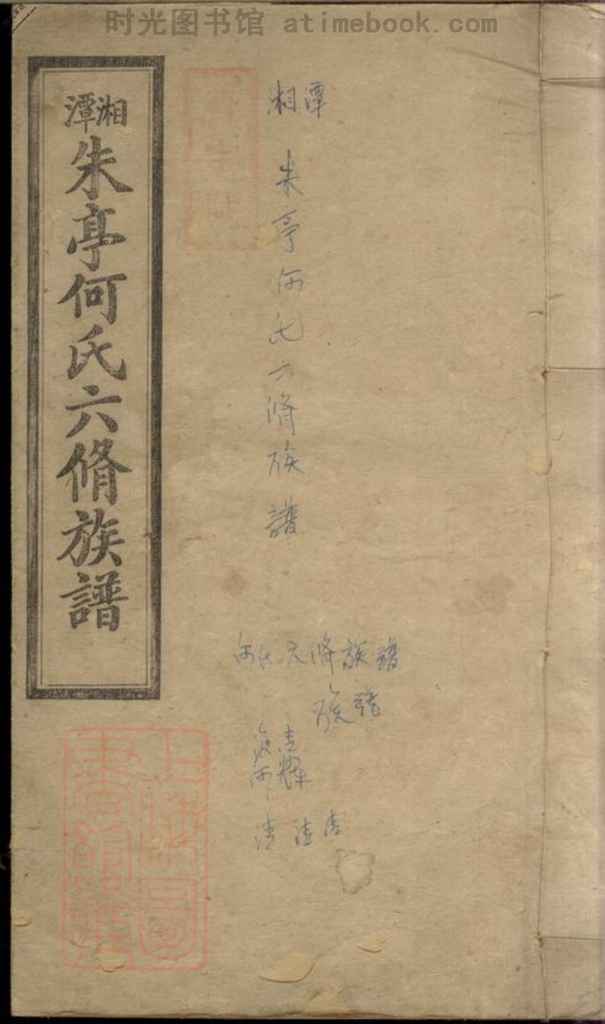 时光图书馆 atimebook.com
湘潭
朱亭何氏六脩族譜
湘潭
朱亭何氏六脩族譜
何氏六脩族譜
族譜